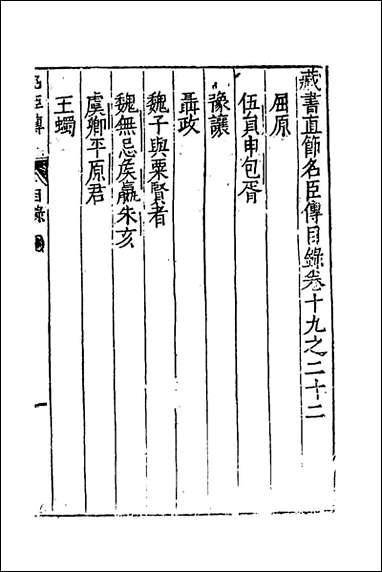 藏書直節名臣傳目錄卷十九之二十二
屈原
伍員申包胥
豫讓
聶政
魏子與粟賢者
魏無忌侯嬴朱亥
虞卿平原君
王蠋
名臣傳
目錄
一